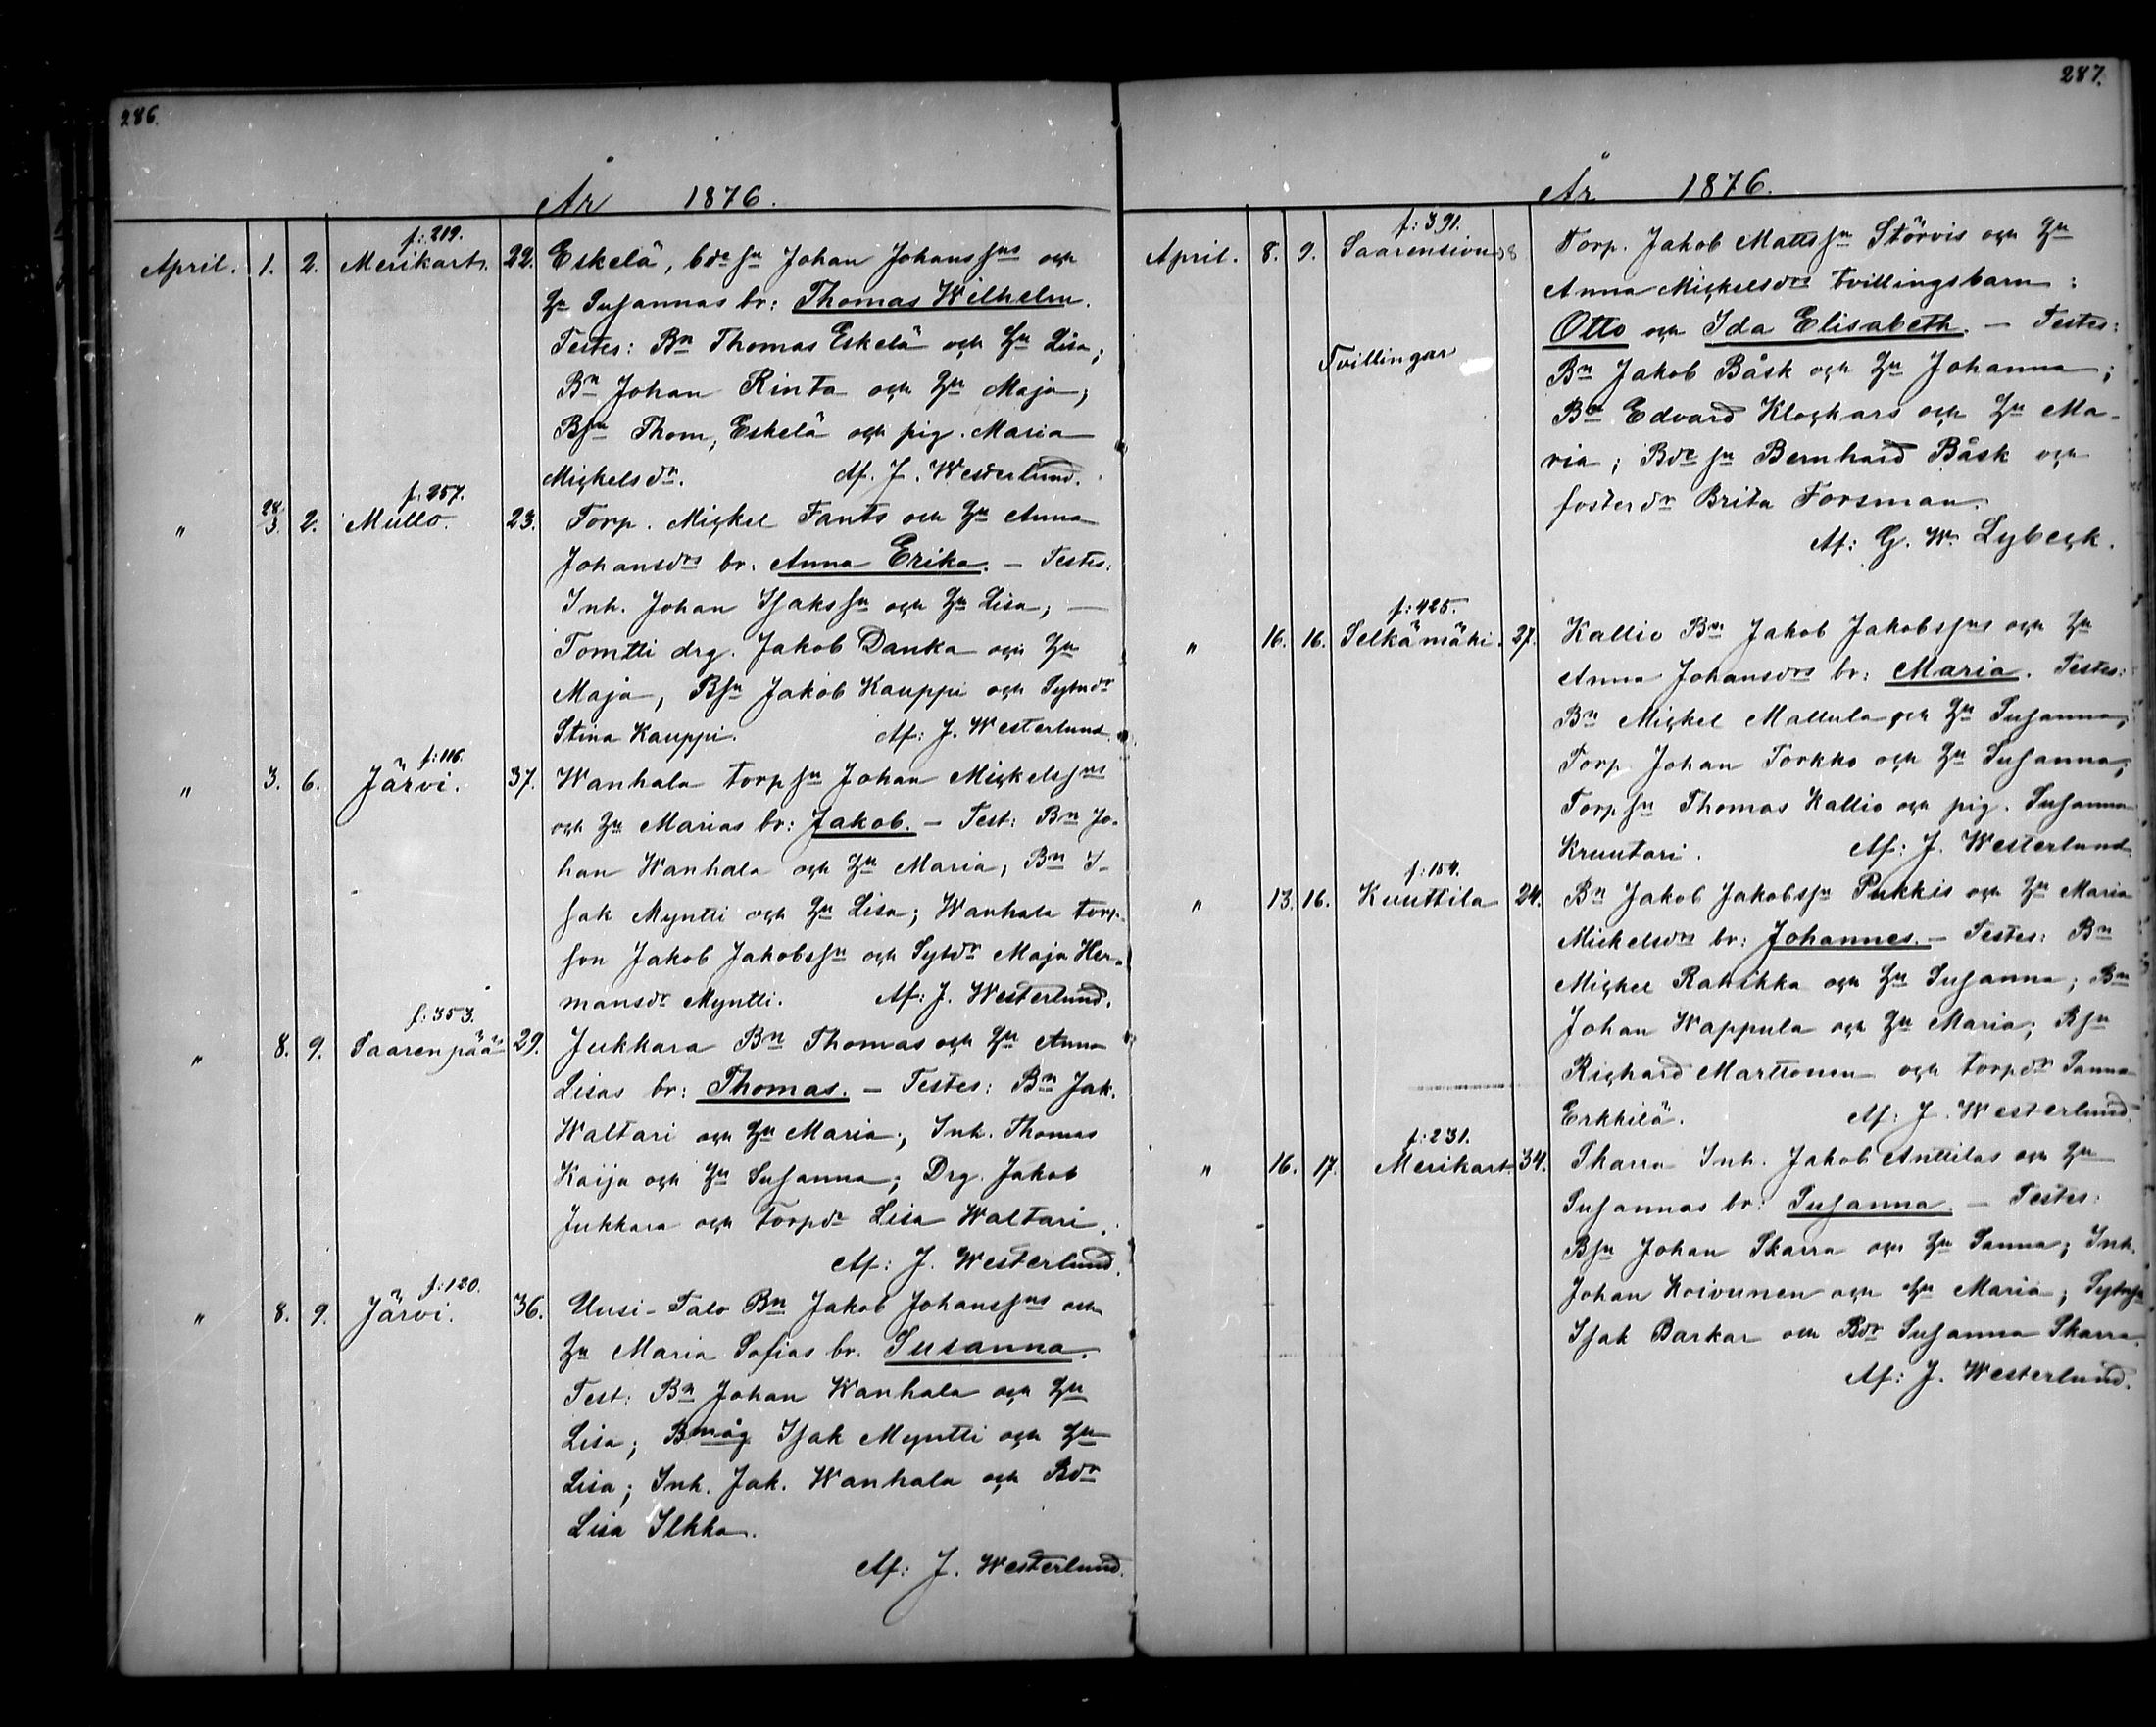 286.
År 1876.
f: 219.
April. 1. 2. Merikart. 22. Eskelä, bdesn Johan Johanssns och
Hu Susannas br: Thomas Wilhelm.
Testes: Bn Thomas Eskelä och Hu Lisa;
Bn Johan Rinta och Hu Maja;
Bsn Thom, Eskelä och pig. Maria
Mickelsdr. Af. J. Westerlund.
f. 257.
" 28/3 2. Mullo. 23. Torp. Mickel Fants och Hu Anna
Johansdrs br. Anna Erika. — Testes:
Inh. Johan Isakssn och Hu Lisa; —
Tomtti drg. Jakob Danka och Hu
Maja, Bsn Jakob Kauppi och Sytndr
Stina Kauppi. Af: J. Westerlund.
f: 116.
" 3. 6. Järvi. 37. Wanhala torpsn Johan Mickelssns
och Hu Marias br: Jakob. — Test: Bn Jo-
han Wanhala och Hu Maria; Bn I-
sak Myntti och Hu Lisa; Wanhala torp-
son Jakob Jakobssn och Sytdr Maja Her-
mansdr Myntti. Af: J. Westerlund.
f: 353.
" 8. 9. Saarenpää 29. Jukkara Bn Thomas och Hu Anna
Lisas br: Thomas. — Testes: Bn Jak.
Waltari och Hu Maria; Inh. Thomas
Kaija och Hu Susanna; Drg. Jakob
Jukkara och Torpdr Lisa Waltari.
Af: J. Westerlund.
f: 120.
" 8. 9. Järvi. 36. Uusi-Talo Bn Jakob Johanssns och
Hu Maria Sofias br. Susanna.
Test: Bn Johan Wanhala och Hu
Lisa; Bmåg Isak Myntti och Hu
Lisa; Inh. Jak. Wanhala och Bdr
Lisa Ilkka.
Af: J. Westerlund.
287.
År 1876.
f: 391.
April. 8. 9. Saarensivu 38 Torp. Jakob Mattssn Störvis och Hu
Anna Mickelsdrs tvillingsbarn:
Otto och Ida Elisabeth. — Testes:
Tvillingar Bn Jakob Båsk och Hu Johanna;
Bn Edvard Klockars och Hu Ma-
ria; Bdesn Bernhard Båsk och
fosterdr Brita Forsman.
Af: G. W. Lybeck.
f: 425.
" 16. 16. Selkämäki. 27. Kallio Bn Jakob Jakobssns och Hu
Anna Johansdrs br: Maria. Testes:
Bn Mickel Mallula och Hu Susanna;
Torp Johan Torkko och Hu Susanna;
Torpsn Thomas Kallio och pig. Susanna
Kruutari. Af: J. Westerlund.
f: 154.
" 13. 16. Kuuttila 24. Bn Jakob Jakobssn Pukkis och Hu Maria
Mickelsdrs br: Johannes. — Testes: Bn
Mickel Rahikka och Hu Susanna; Bn
Johan Wappula och Hu Maria; Bsn
Richard Marttonen och torpdr Sanna
Erkkilä. Af: J. Westerlund.
f: 231.
" 16. 17. Merikart. 34. Skarra Inh. Jakob Anttilas och Hu
Susannas br: Susanna. — Testes:
Bsn Johan Skarra och Hu Sanna; Inh.
Johan Koivunen och Hu Maria; Sytnsn
Isak Barkar och Bdr Susanna Skarra.
Af: J. Westerlund.